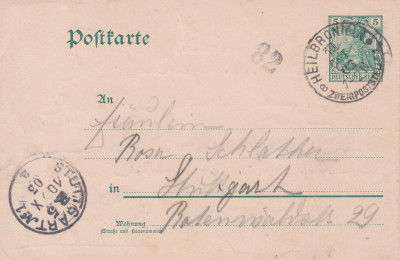 5 5
HEILBRONN
ZWEIGPOSTST
Postkarte
82
DEUTSCHES REICH
An
Fräulein
Rosa Schlather
STUTTGART No 1
10 X
03
in Stuttgart
Wohnung
(Straße und Hausnummer)
Rotenwaldstr 29